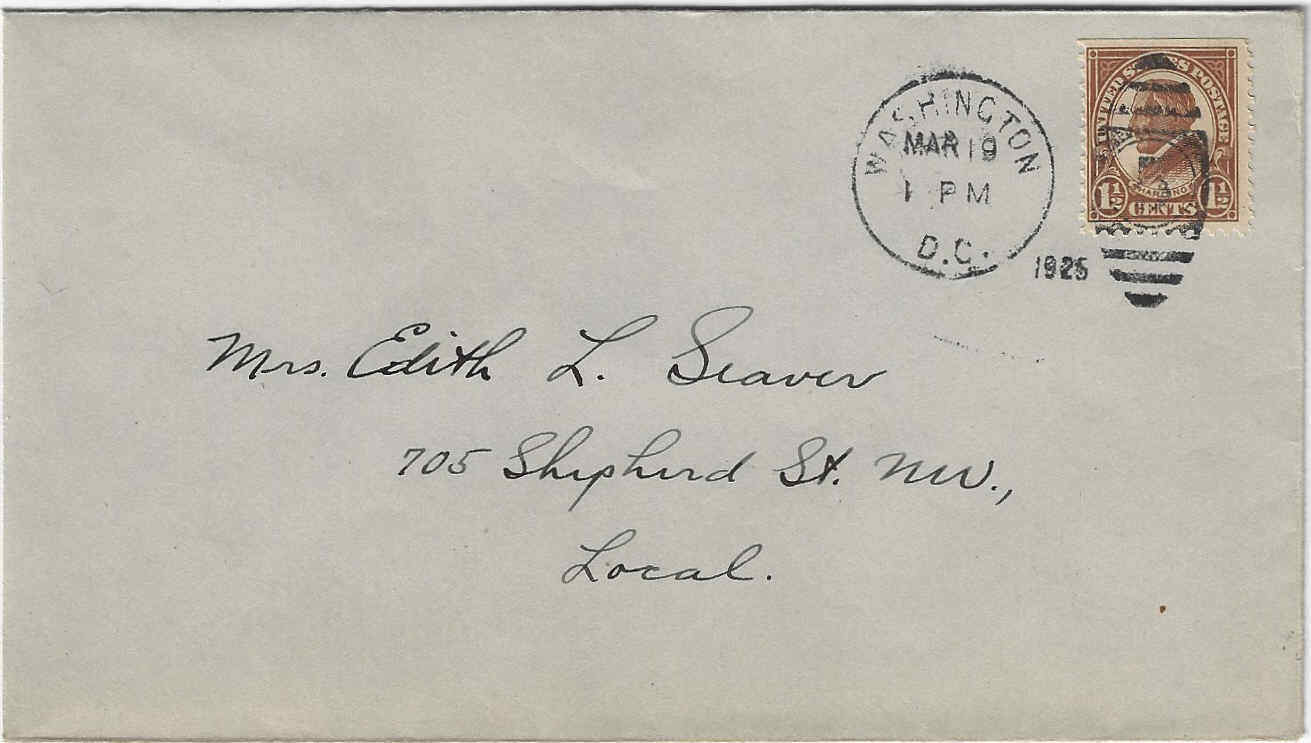 WASHINGTON
MAR 19
1 PM
D.C.
1925
UNITED STATES POSTAGE
HARDING
1½ CENTS 1½
Mrs. Edith L. Seaver
705 Shepherd St. NW.,
Local.